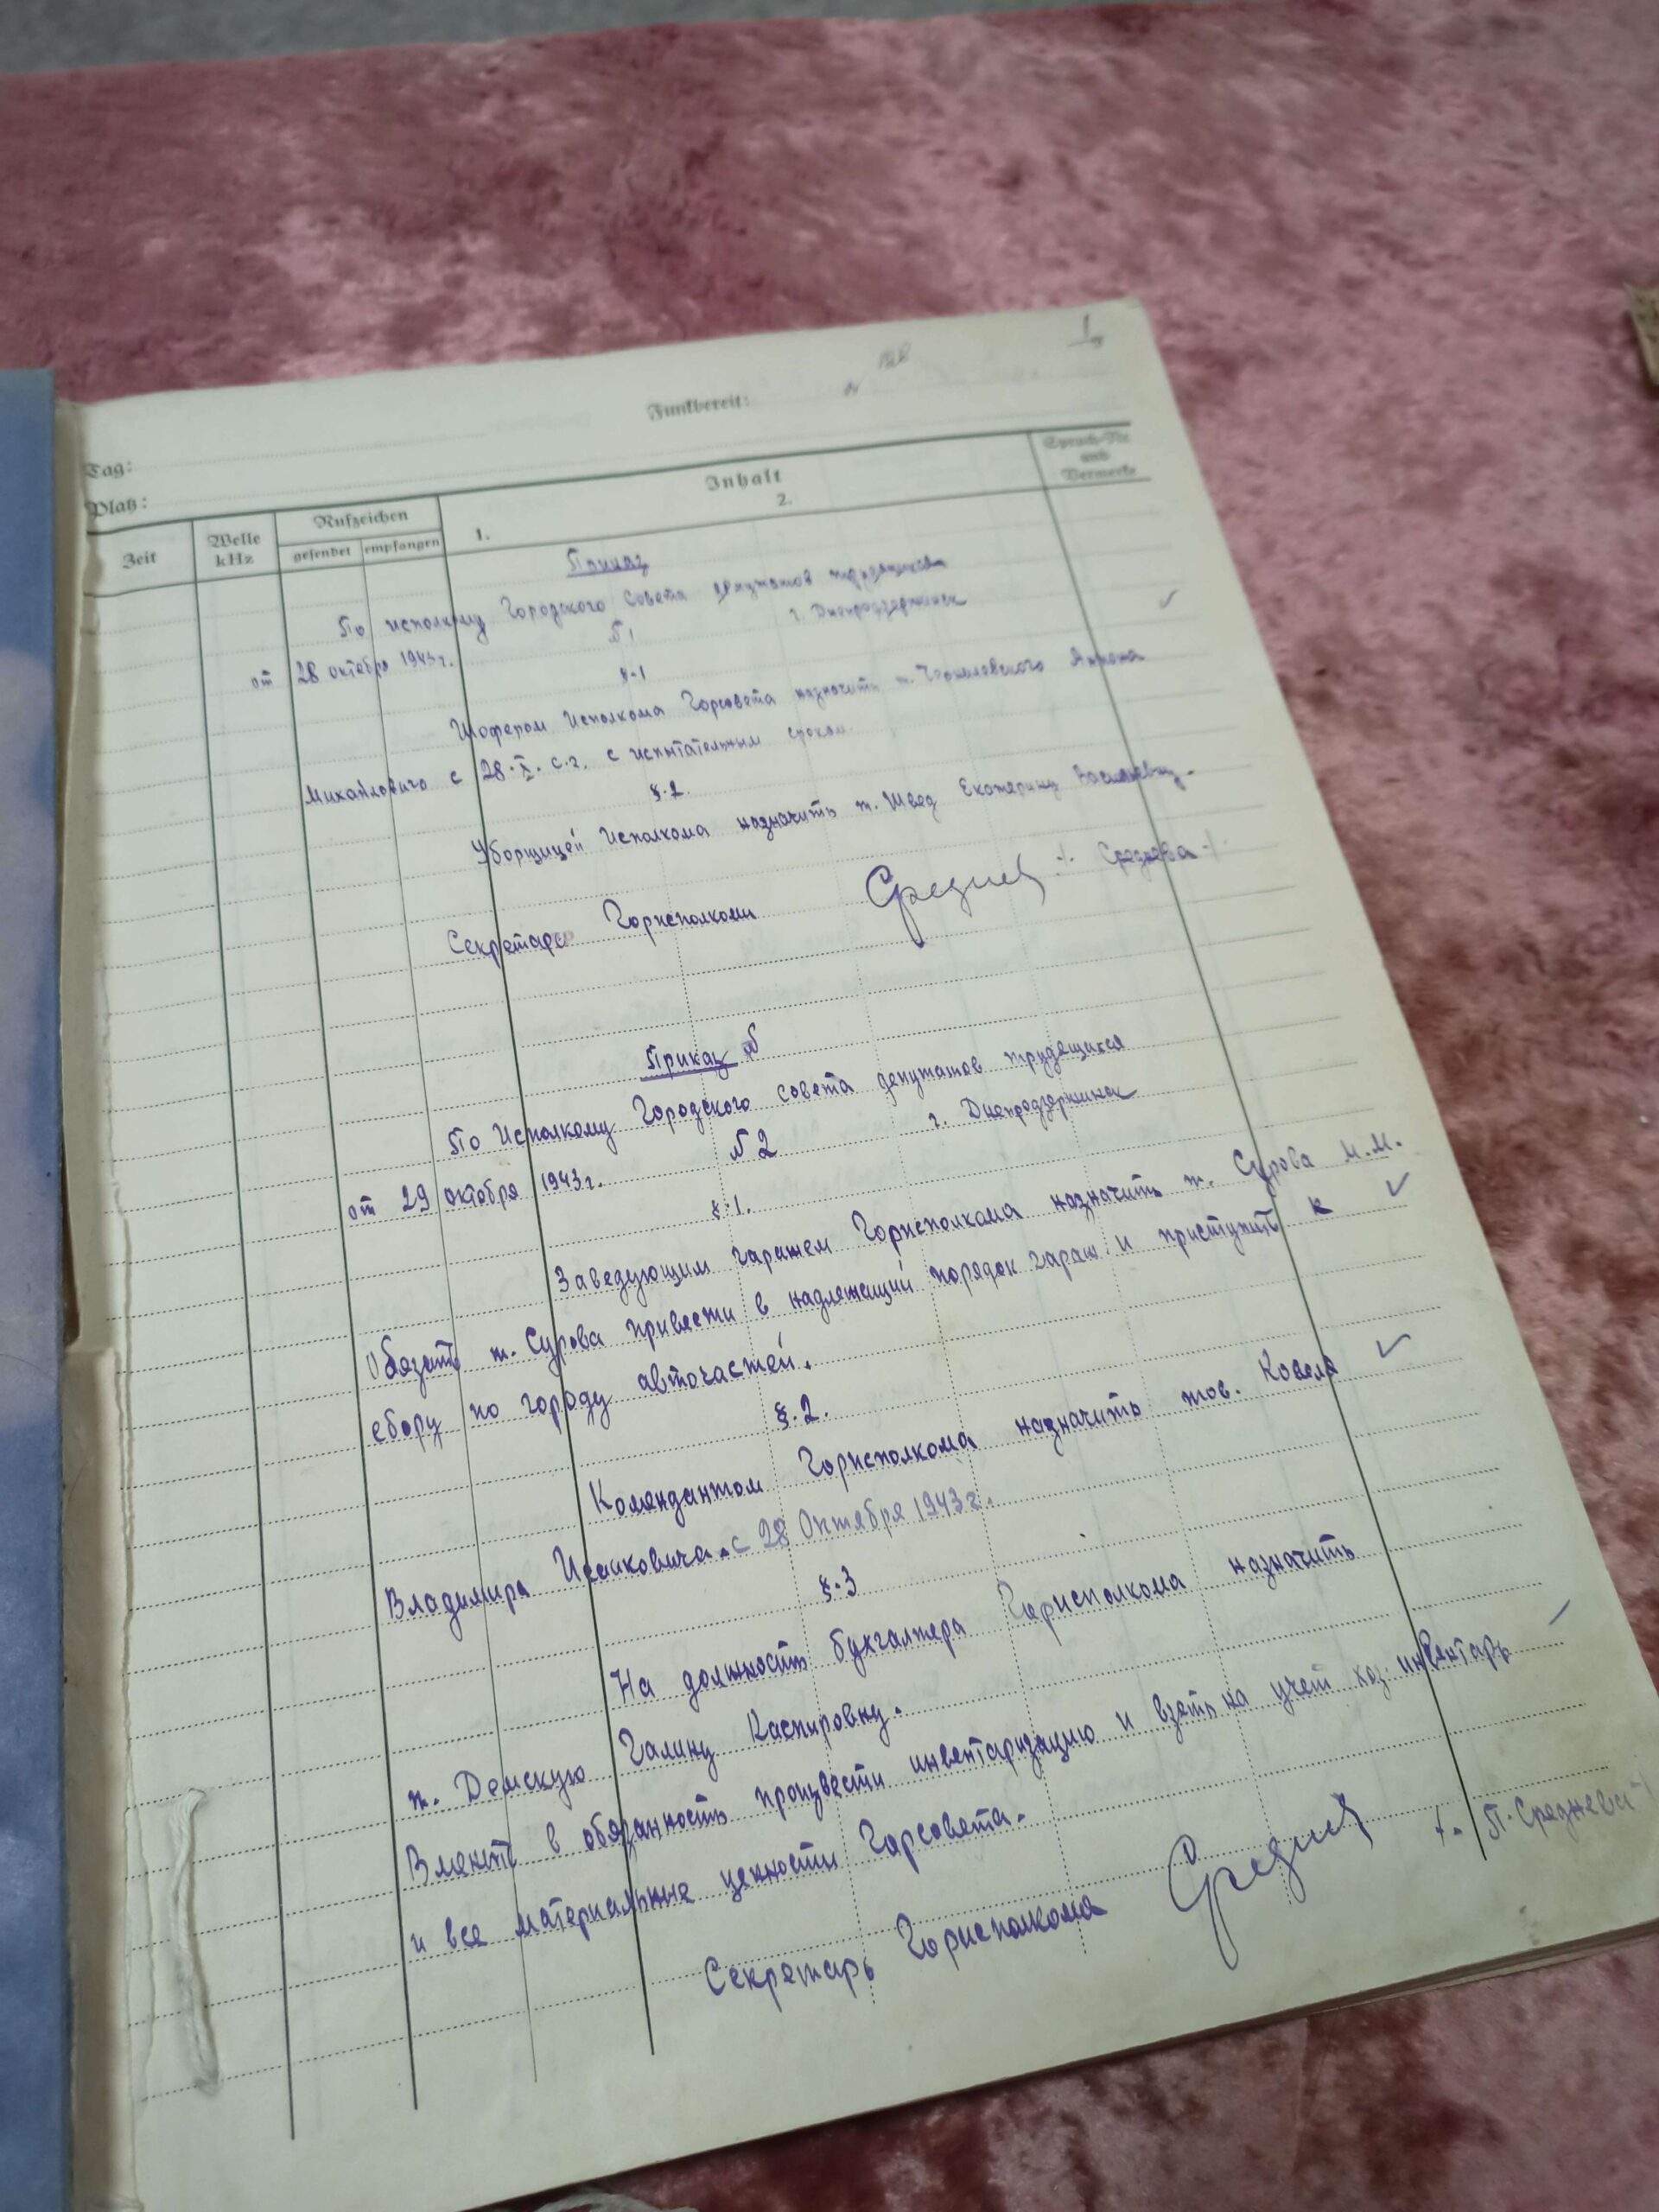 Funkbereit:
Tag:
Platz:
Zeit
Welle kHz
Rufzeichen
gesendet empfangen
Inhalt
1. 2.
Spruch-Nr. und Vermerke
Приказ
По исполкому Городского Совета депутатов трудящихся
№1 г. Днепродзержинск
от 28 октября 1943г.
§-1
Шофером Исполкома Горсовета назначить т.
Михайловича с 28.X. с.г. с испытательным сроком.
§.2.
Уборщицей Исполкома назначить т. Швед Екатерину Васильевну.
Секретарь Горисполкома Среднев /- Среднева -/
Приказ №
По Исполкому Городского Совета депутатов трудещихся
№2 г. Днепродзержинск
от 29 октября 1943г.
§.1.
Заведующим гаражем Горисполкома назначить т. Сурова М.М.
Обязать т. Сурова привести в надлежищий порядок гараж и приступить к
сбору по городу авточастей.
§.2.
Комендантом Горисполкома назначить тов. Коваля
Владимира с 28 Октября 1943г.
§.3
На должность бухгалтера Горисполкома назначить
т. Галину Каспировну.
Вменить в обязанность произвести инвентаризацию и взять на учет хоз. инвентарь
и все материальные ценности Горсовета.
Секретарь Горисполкома Среднев /- П. Среднева /